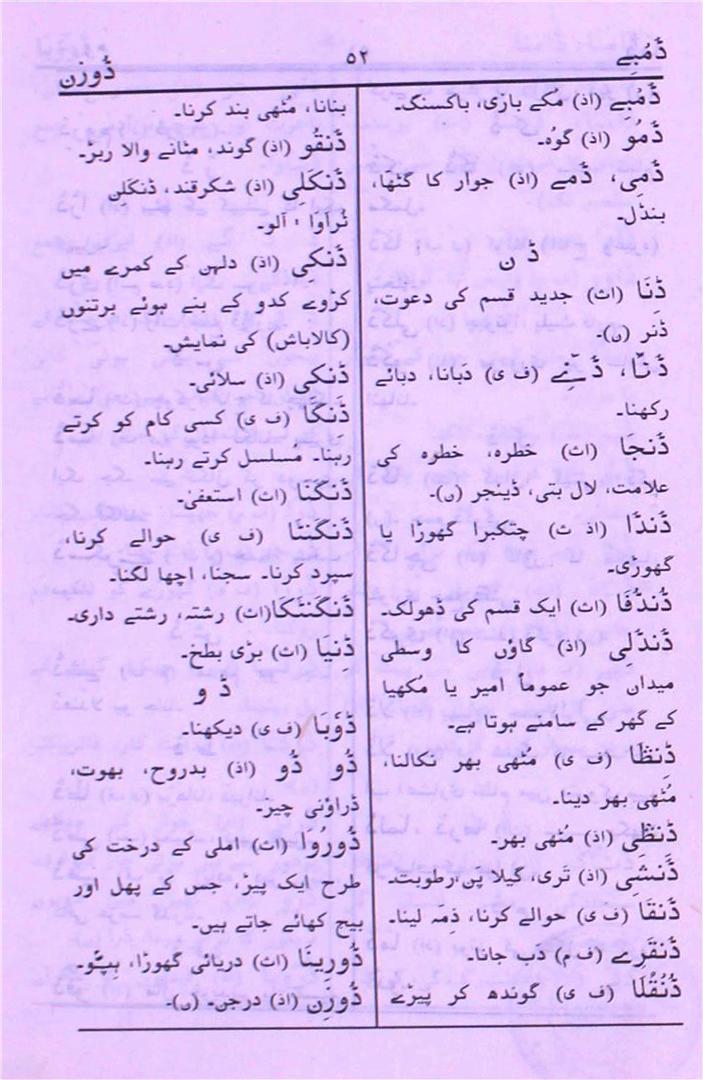 ڈَمْبے
۵۲
ڈوزن
ڈَمْبے (اذ) مکے بازی، باکسنگ۔
ڈَمُو (اذ) گوہ۔
ڈَمی، ڈَمے (اذ) جوار کا گٹھا،
بنڈل۔
ڈ ن
ڈِنَا (اث) جدید قسم کی دعوت،
ڈنر (ن)۔
ڈَنّا، ڈَنّے (ف ی) دبانا، دبائے
رکھنا۔
ڈَنجَا (اث) خطرہ، خطرہ کی
علامت، لال بتی، ڈینجر (ن)۔
ڈَنڈَا (اذ ث) چتکبرا گھوڑا یا
گھوڑی۔
ڈُنڈُفَا (اث) ایک قسم کی ڈھولک۔
ڈَنڈَلِی (اذ) گاؤں کا وسطی
میدان جو عموماً امیر یا مکھیا
کے گھر کے سامنے ہوتا ہے۔
ڈَنظَا (ف ی) مٹھی بھر نکالنا،
مٹھی بھر دینا۔
ڈَنظِی (اذ) مُٹھی بھر۔
ڈَنشِی (اذ) تری، گیلا پن، رطوبت۔
ڈَنقَا (ف ی) حوالے کرنا، ذِمہ لینا۔
ڈَنقَرے (ف م) دب جانا۔
ڈُنْقُلَا (ف ی) گوندھ کر پیڑے
بنانا، مُٹھی بند کرنا۔
ڈَنقُو (اذ) گوند، مٹانے والا ربڑ۔
ڈَنکَلِی (اذ) شکرقند، ڈنکَلن
تُراوَا ' آلو۔
ڈَنکِی (اذ) دلہن کے کمرے میں
کڑوے کدو کے بنے ہوئے برتنوں
(کالاباش) کی نمایش۔
ڈنکِی (اذ) سلائی۔
ڈَنگَا (ف ی) کسی کام کو کرتے
رہنا۔ مُسلسل کرتے رہنا۔
ڈَنکَنَا (اث) استعفیٰ۔
ڈَنکَنتَا (ف ی) حوالے کرنا،
سپرد کرنا۔ سجنا، اچھا لگنا۔
ڈَنکَنتَکَا(اث) رشتہ، رشتے داری۔
ڈِنیَا (اث) بڑی بطخ۔
ڈ و
ڈُوبَا (ف ی) دیکھنا۔
ڈُو ڈُو (اذ) بدروح، بھوت،
ڈراؤنی چیز۔
ڈُورُوَا (اث) املی کے درخت کی
طرح ایک پیڑ، جس کے پھل اور
بیج کھائے جاتے ہیں۔
ڈُورِینَا (اث) دریائی گھوڑا، ہپّو۔
ڈُوزَن (اذ) درجن۔ (ن)۔